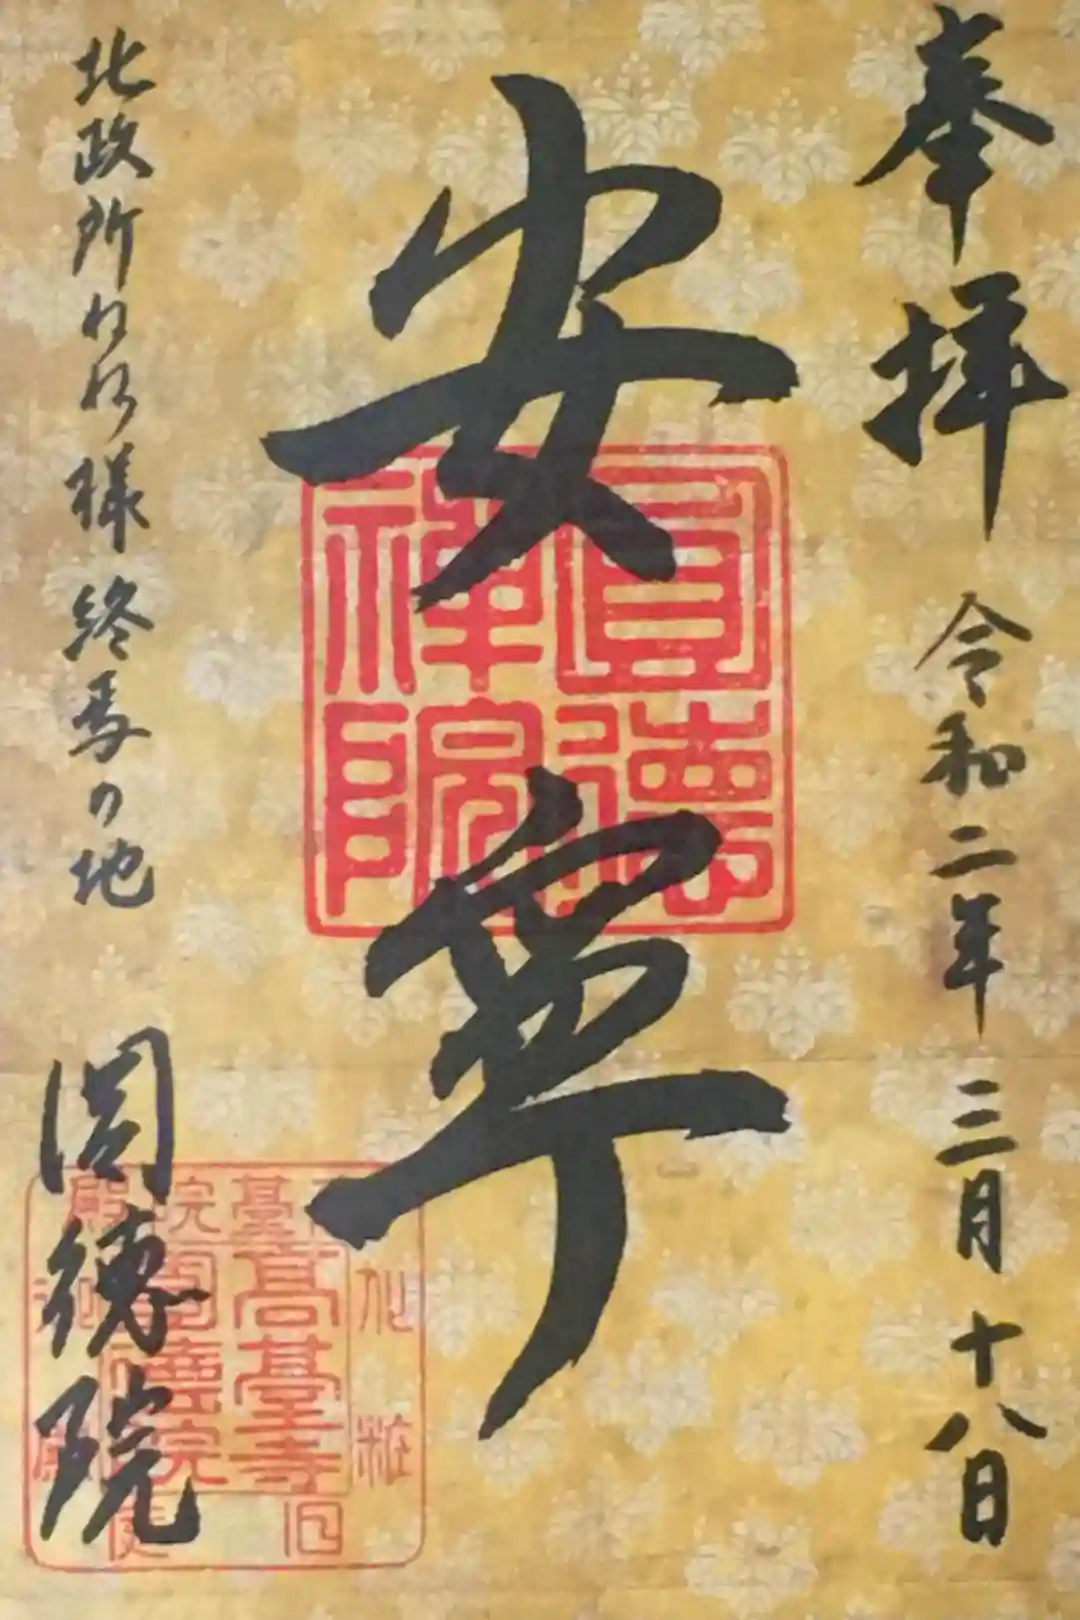 奉拝 令和二年 三月 十八日
安寧
圓徳禅院
北政所ねね様 終焉の地
圓徳院
高臺寺
圓德院